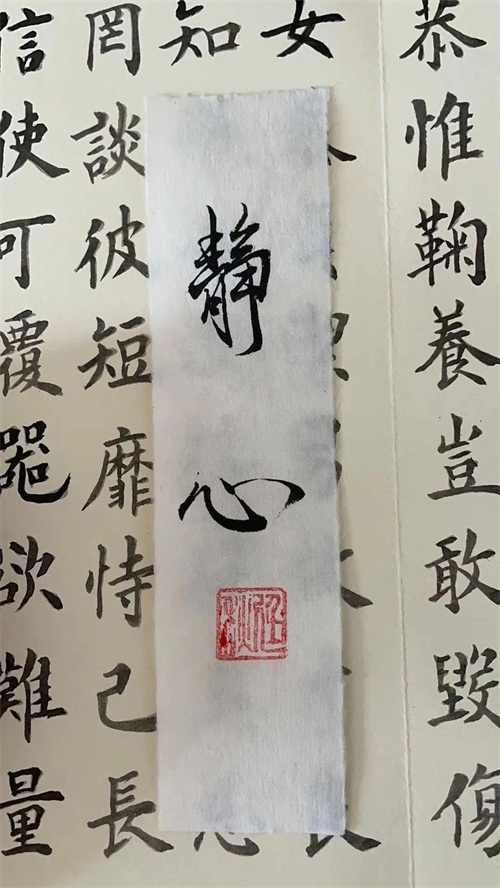 恭惟鞠養豈敢毀傷
女
知
罔談彼短靡恃己長
信使可覆器欲難量
靜心